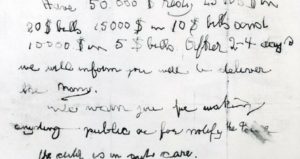 Have 50.000 $ redy 25000 $ in
20 $ bills 15000 $ in 10 $ bills and
10000 $ in 5 $ bills After 2-4 days
we will inform you were to deliver
the mony.
We warn you for making
anyding public or for notify the
the child is in gut care.